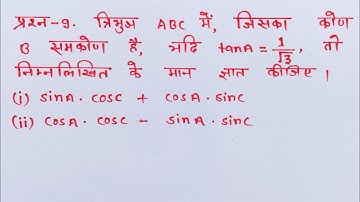 प्रश्न-9. त्रिभुज ABC में, जिसका कोण
B समकोण है, यदि tanA = 1/√3, तो
निम्नलिखित के मान ज्ञात कीजिए।
(i) sinA. cosc + cosA. sinc
(ii) cosA. cosc - sinA. sinc